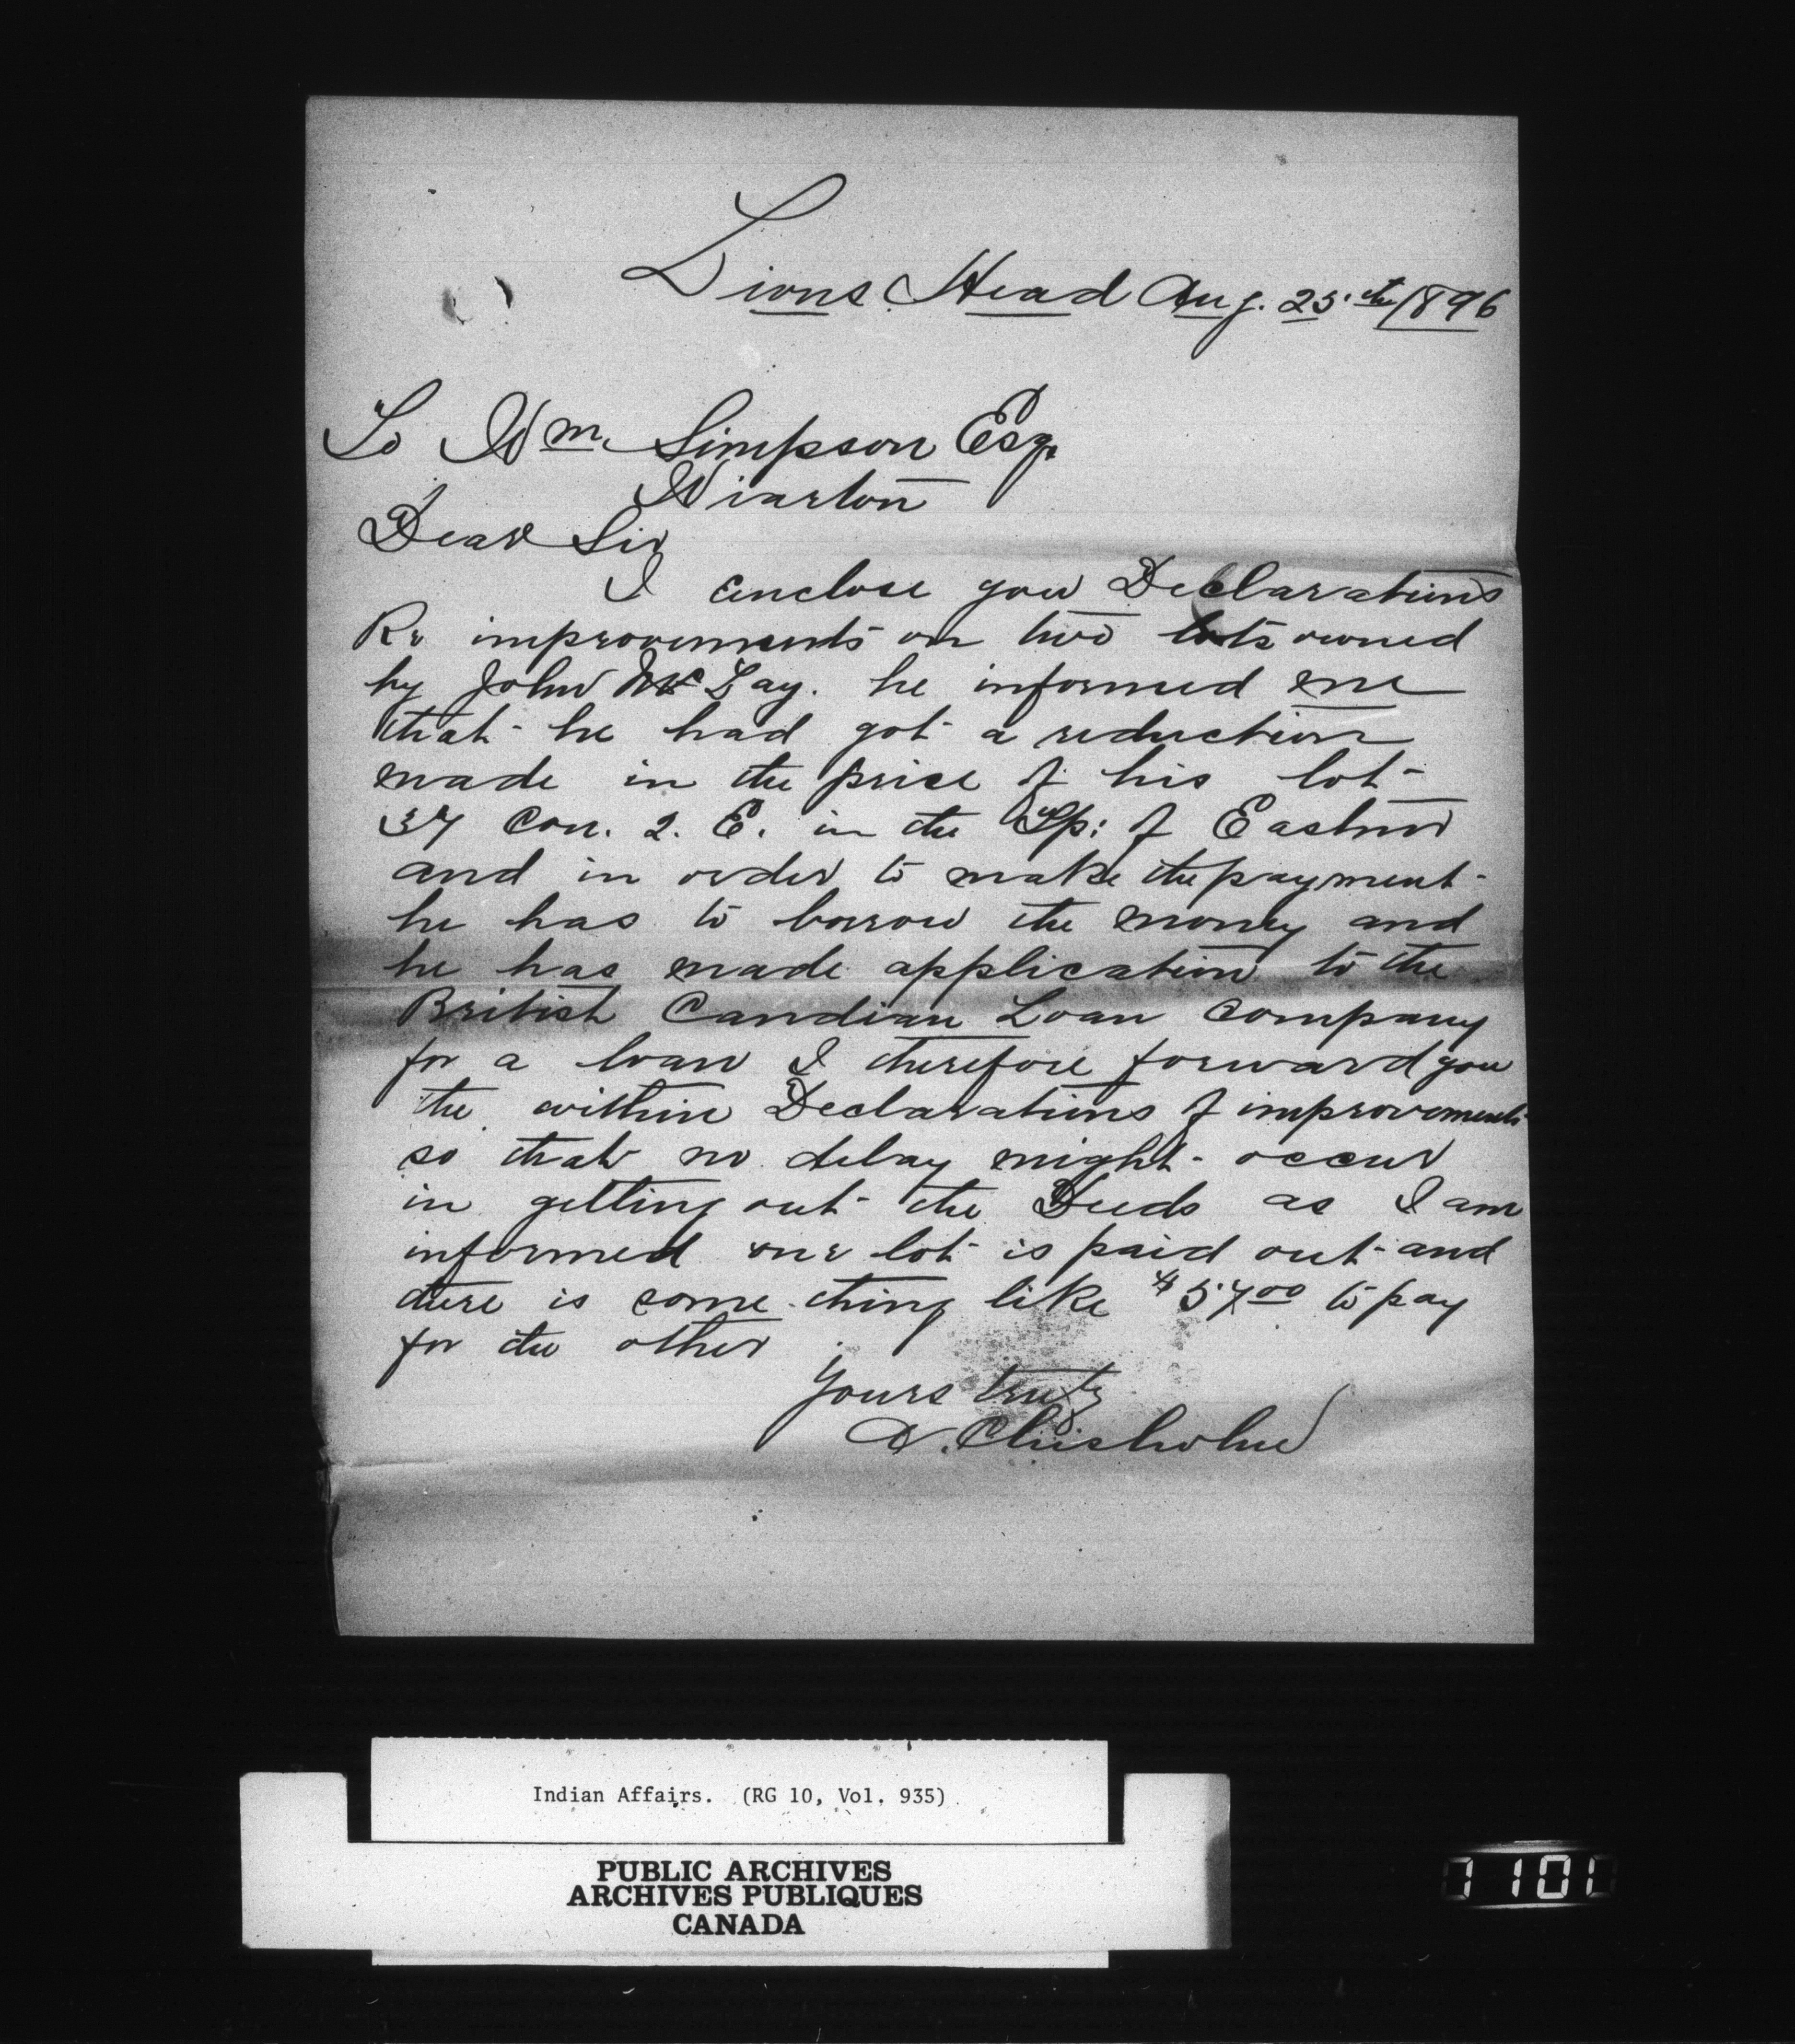 Lions Head Aug. 25.th/1896
To Wm. Simpson Esq.
Wiarton
Dear Sir
I enclose you Declarations
Re improvements on two lots owned
by John McLay. he informed me
that he had got a reduction
made in the price of his lot
37 Con. 2. E. in the Tp: of Eastnor
and in order to make the payment
he has to borrow the money and
he has made application to the
British Candian Loan Company
for a loan I therefore forward you
the within Declarations of improvements
so that no delay might occur
in getting out the Deeds as I am
informed one lot is paid out and
there is some thing like $57.00 to pay
for the other
Yours truly
D. Chisholm
Indian Affairs. (RG 10, Vol. 935)
PUBLIC ARCHIVES
ARCHIVES PUBLIQUES
CANADA
1101